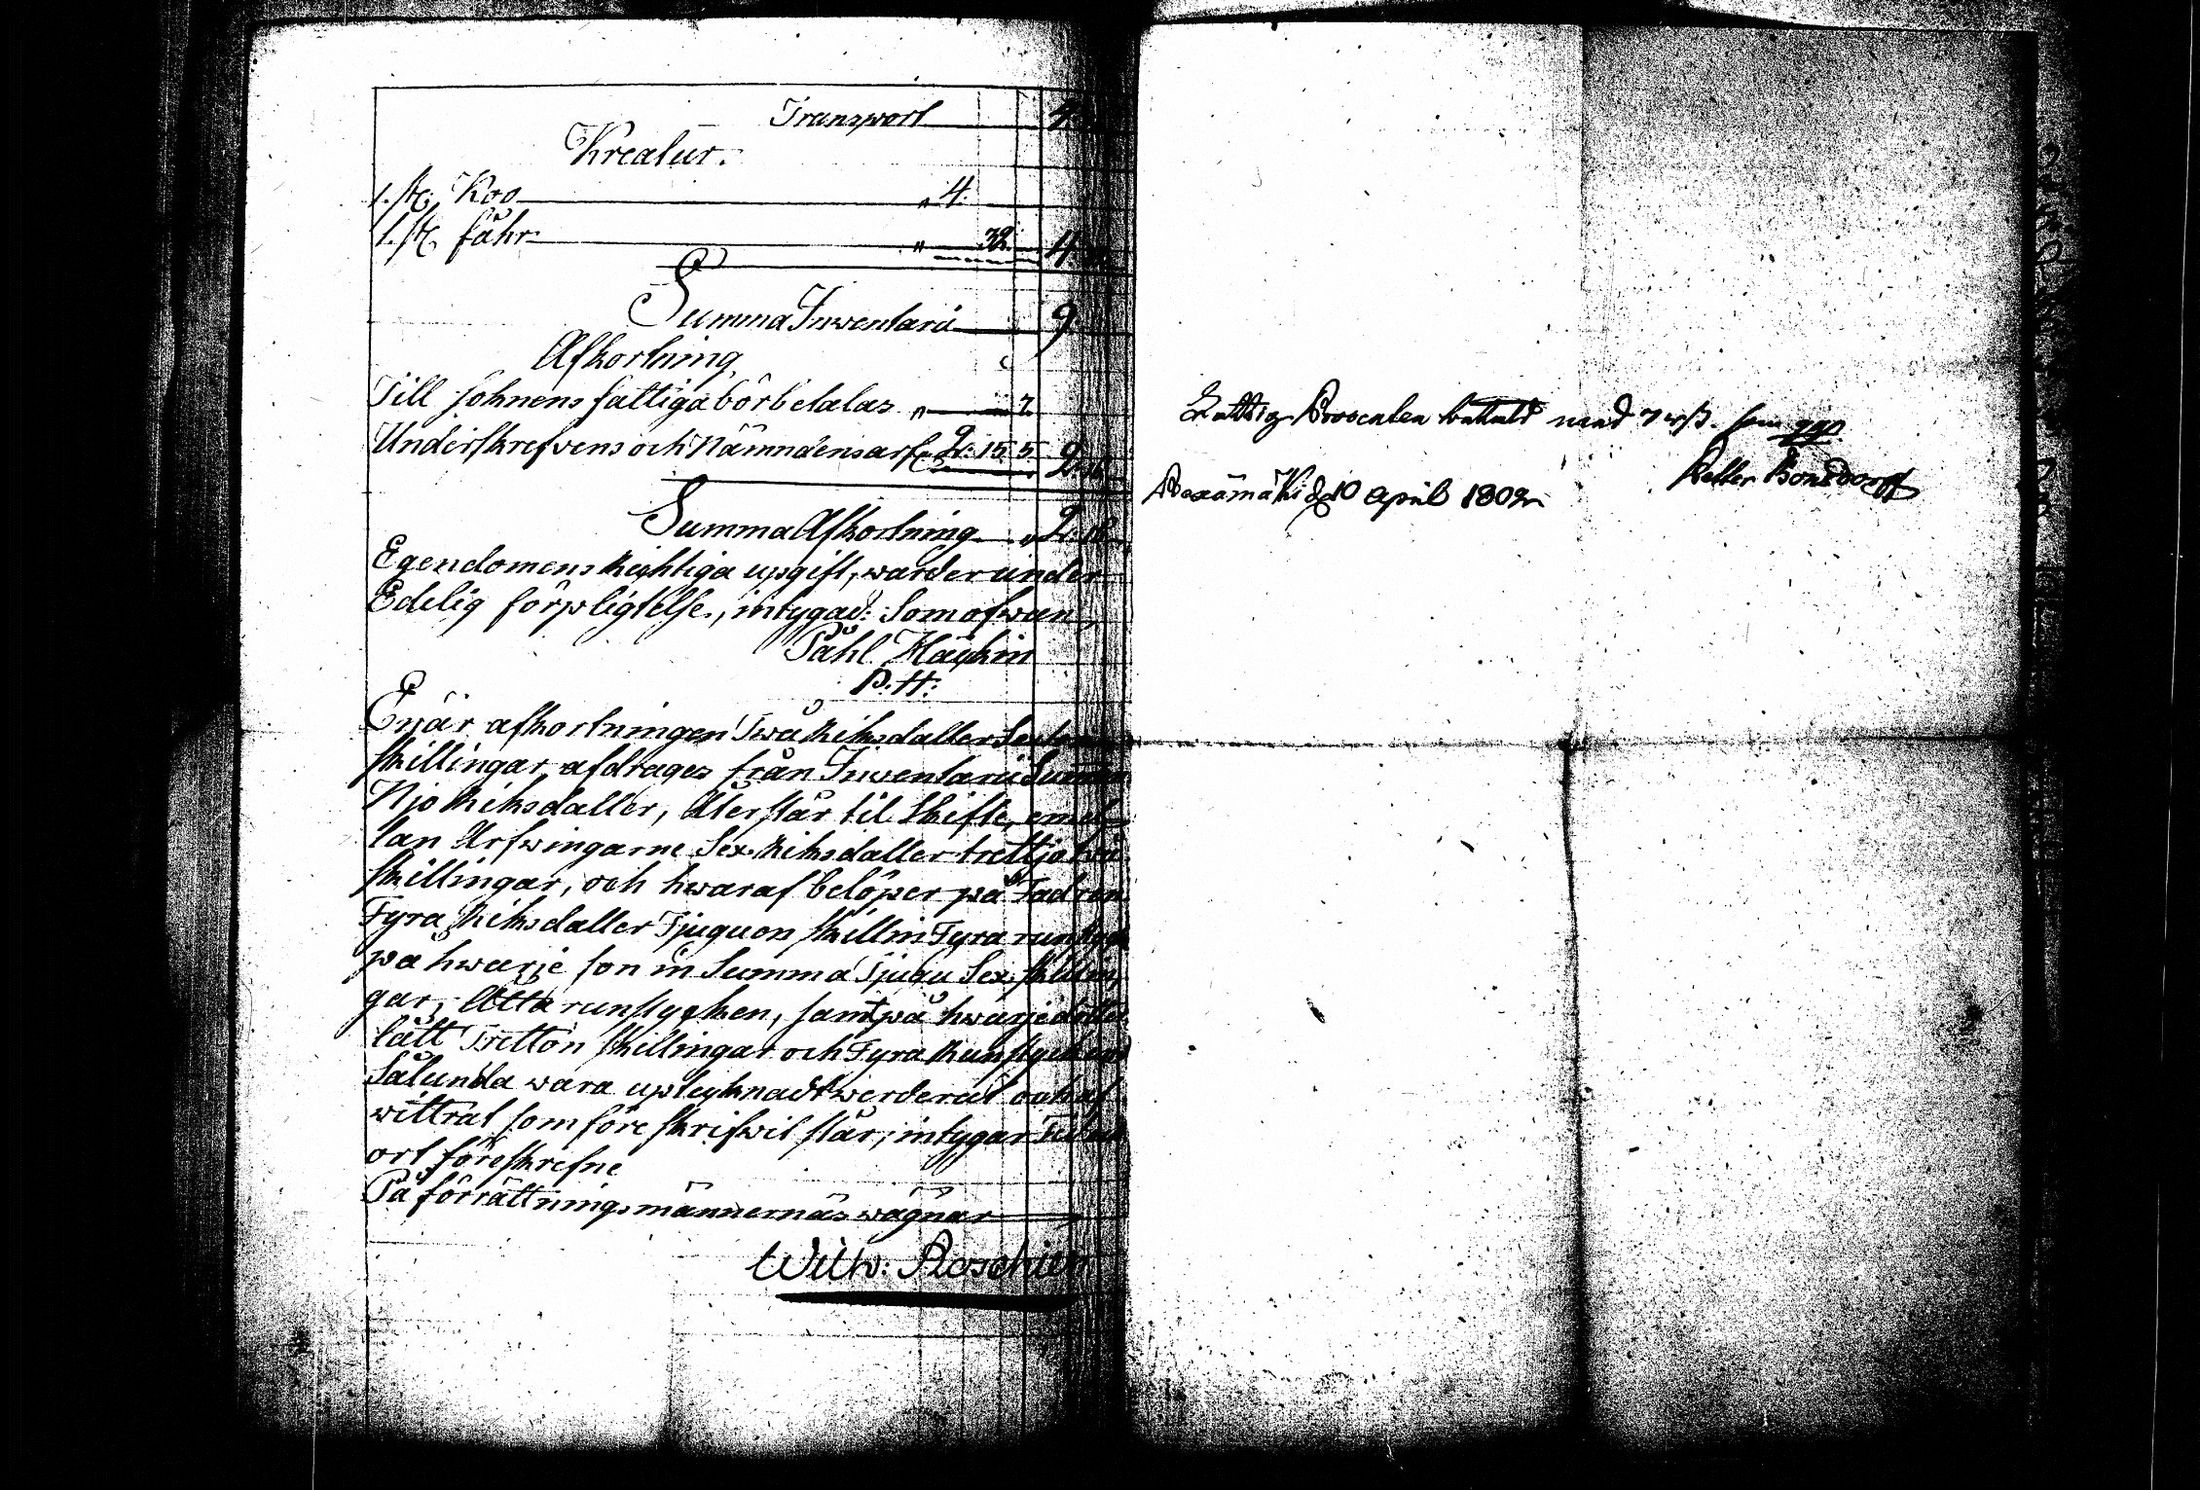 Transport 4
Kreatur.
1. st. Koo " 4.
1. st. fåhr " 32. 4
Summa Inventarii 9
Afkortning
Till sohnens fattiga bör betalas " 7.
Underskrefvens och Nämndens arf. 2: 15 5. 2: 16
Summa Afkortning " 2: 16
Egendomens Rightiga upgift, warder under
Edelig förpligtelse, intygad: Som ofwan
Påhl Häykin
P. H:
Enär afkortningen Twå Riksdaller Sexton
skillingar afdrages från Inwentarii Summan
Njo Riksdaller, Återstår til Skifte, emel-
lan Arfwingarne Sex Riksdaller trettjo twå
skillingar, och hwaraf belöper på Fadren
Fyra Riksdaller Tjuguen skillin Fyra runstyk
på hwarje son in Summa Tjugu Sex skillin,
gar, Åtta runstycken, samt på hwarje dotter
lått Tretton skillingar och Fyra Runstycken
Sålunda wara upteyknadt werderat och af
wittrat som föreskrifwit står, intygar
ort föreskrefne
På förrättningsmännernäs wägnar
Wilh: Roschier
Fattig Procenten betalt med 7 rß. som qvo.
d 10 April 1802
Petter Bonsdorff